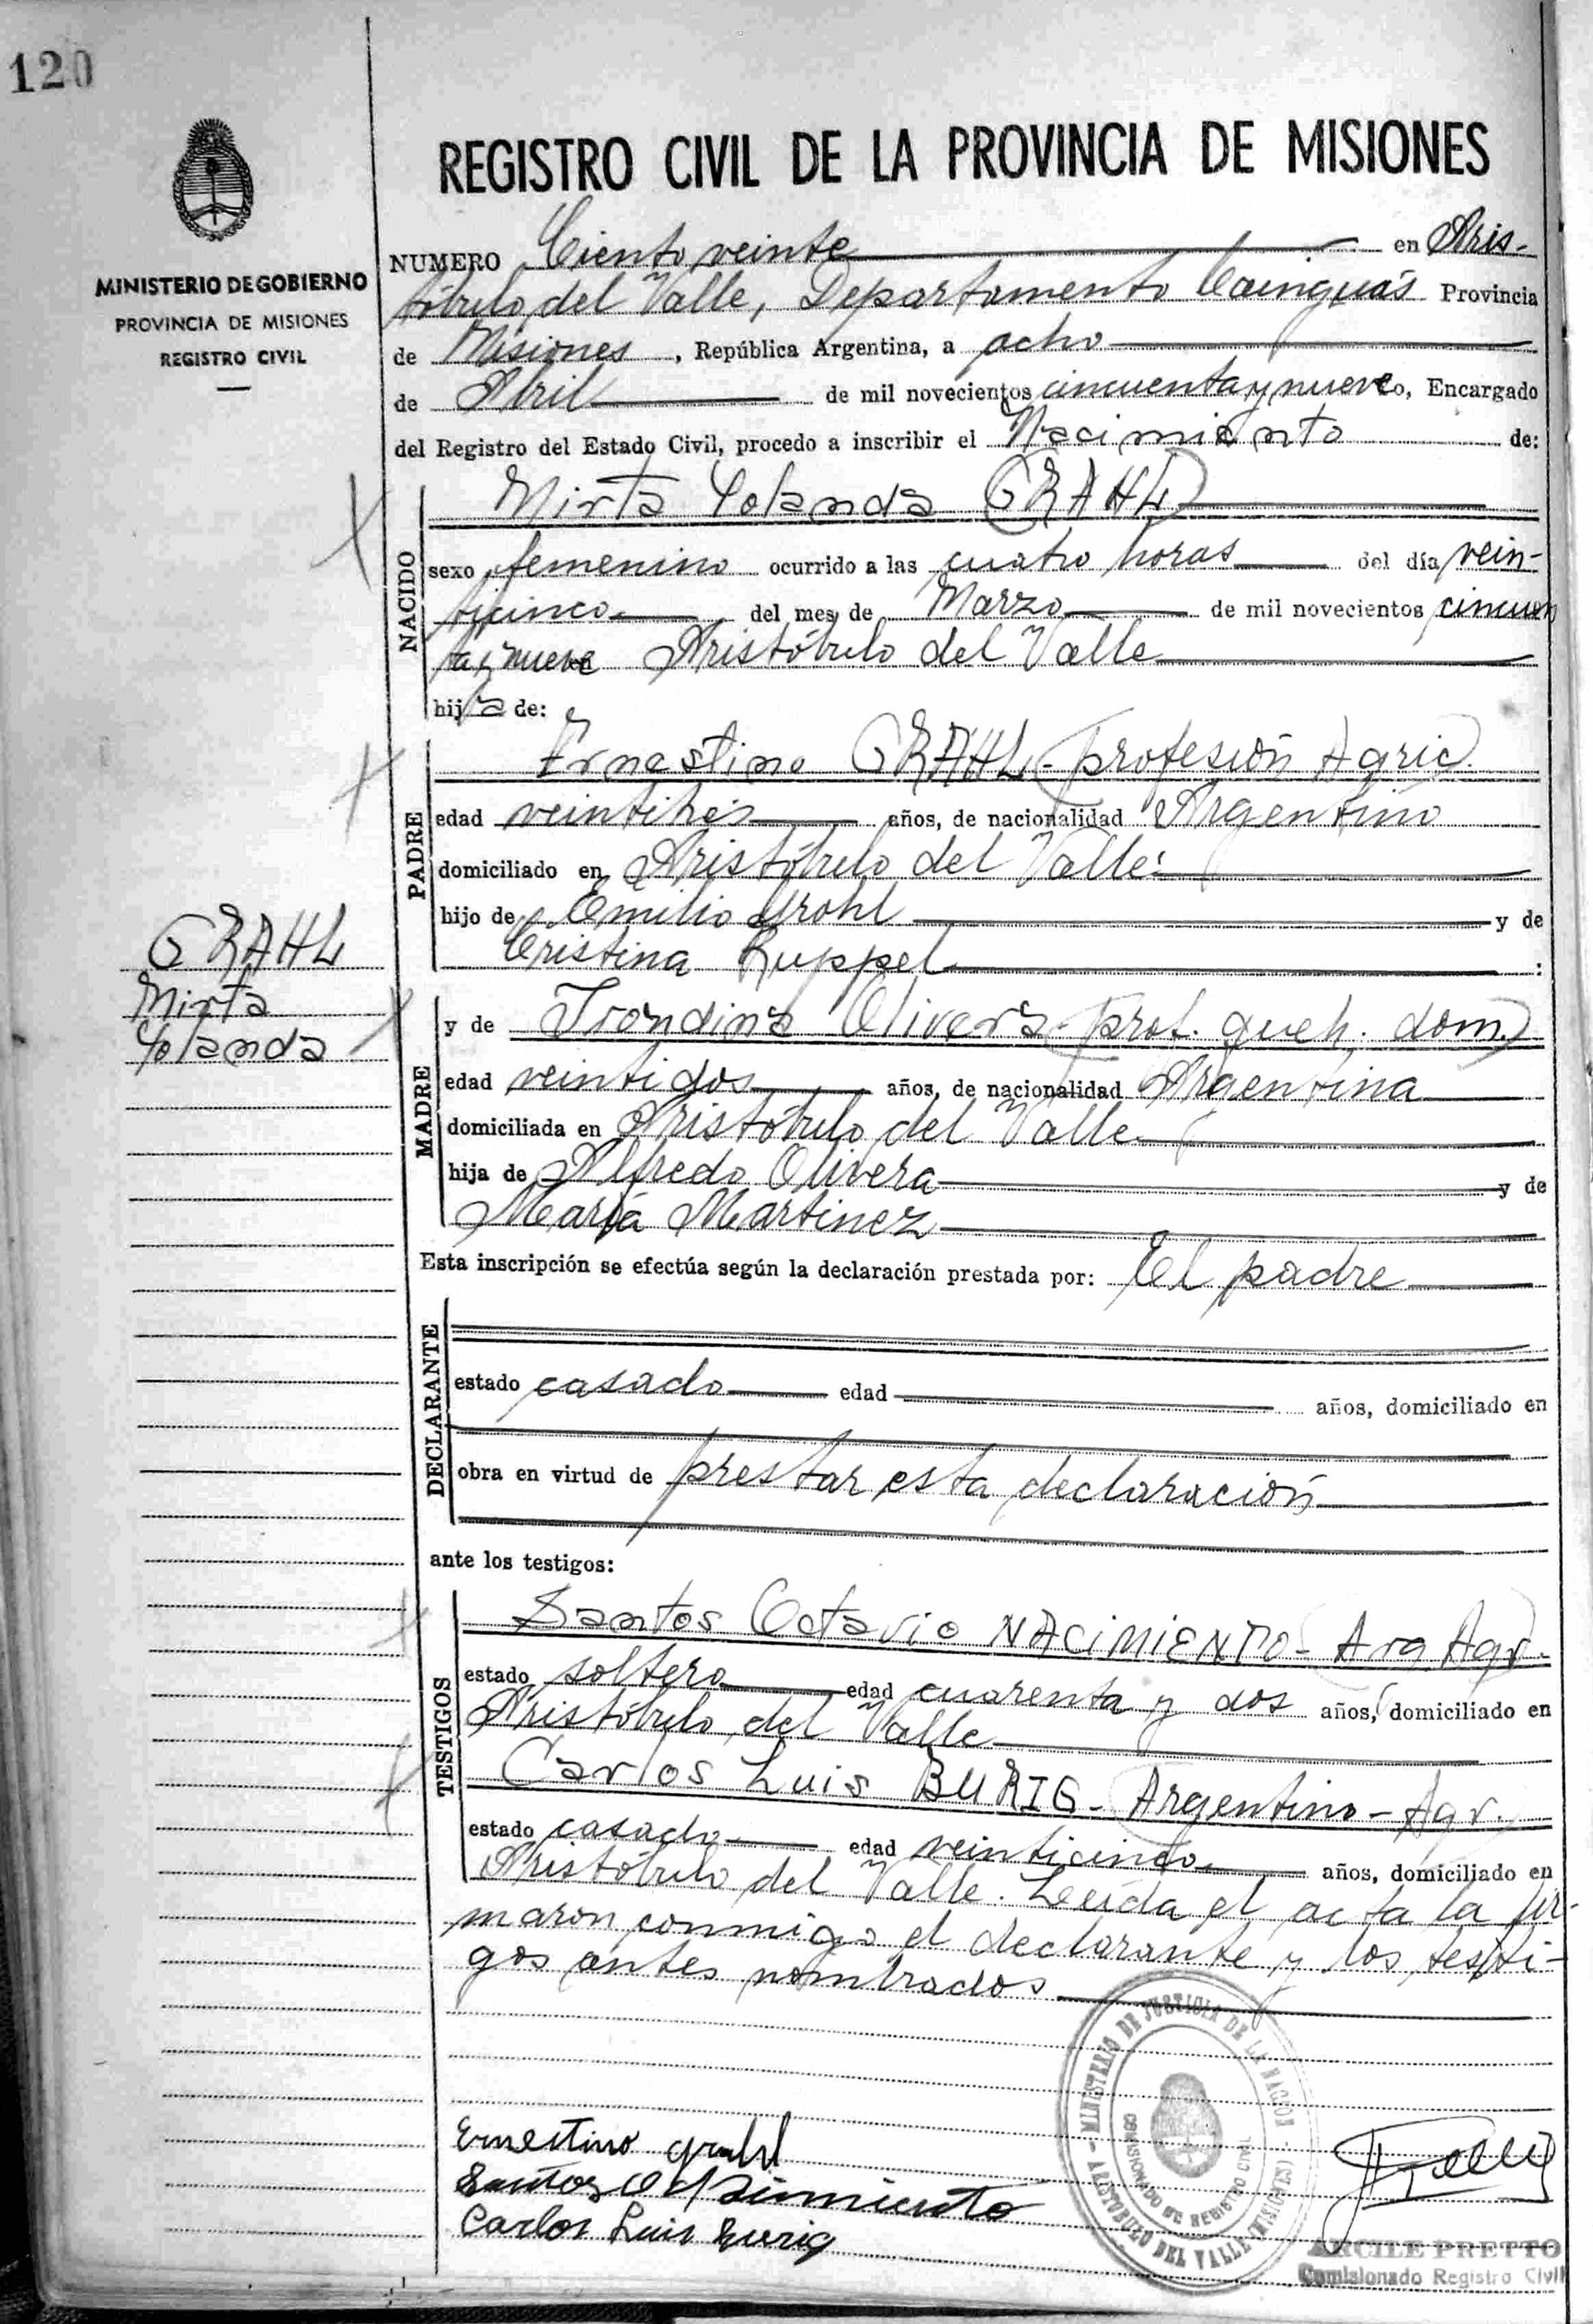 120
MINISTERIO DE GOBIERNO
PROVINCIA DE MISIONES
REGISTRO CIVIL
REGISTRO CIVIL DE LA PROVINCIA DE MISIONES
NUMERO Ciento veinte en Aris-
tóbulo del Valle, Departamento Cainguás Provincia
de Misiones, República Argentina, a ocho
de Abril de mil novecientos cincuenta y nueve, Encargado
del Registro del Estado Civil, procedo a inscribir el Nacimiento de:
NACIDO
Mirta Yolanda GRAHL
sexo femenino ocurrido a las cuatro horas del día vein-
ticinco del mes de Marzo de mil novecientos cincuen
ta y nueve en Aristóbulo del Valle
hija de:
PADRE
Ernestino GRAHL (profesión Agric.)
edad veintitrés años, de nacionalidad Argentino
domiciliado en Aristóbulo del Valle:
hijo de Emilio Grahl y de
Cristina Ruppel :
GRAHL
Mirta
Yolanda
MADRE
y de Trondina Olivera (prof. queh. dom.)
edad veintidos años, de nacionalidad Argentina
domiciliada en Aristóbulo del Valle
hija de Alfredo Olivera y de
María Martinez
Esta inscripción se efectúa según la declaración prestada por: El padre
DECLARANTE
estado casado edad años, domiciliado en
obra en virtud de prestar esta declaración
ante los testigos:
TESTIGOS
Santos Octavio NACIMIENTO - Arg. Agr.
estado soltero edad cuarenta y dos años, domiciliado en
Aristóbulo del Valle
Carlos Luis BURIG - Argentino - Agr.
estado casado edad veinticinco años, domiciliado en
Aristóbulo del Valle. Leída el acta la fir-
maron conmigo el declarante y los testi-
gos antes nombrados
MINISTERIO DE JUSTICIA DE LA NACION - ARISTOBULO DEL VALLE (MISIONES) -
COMISIONADO DE REGISTRO CIVIL
Ernestino Grahl
Santos O Nasimiento
Carlos Luis Burig
ARCILE PRETTO
Comisionado Registro Civil